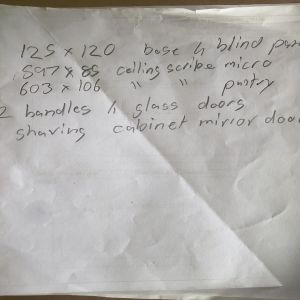 125 x 120 base & blind pan
597 x 85 ceiling scribe micro
603 x 106 " " pantry
2 handles & glass doors
shaving cabinet mirror door